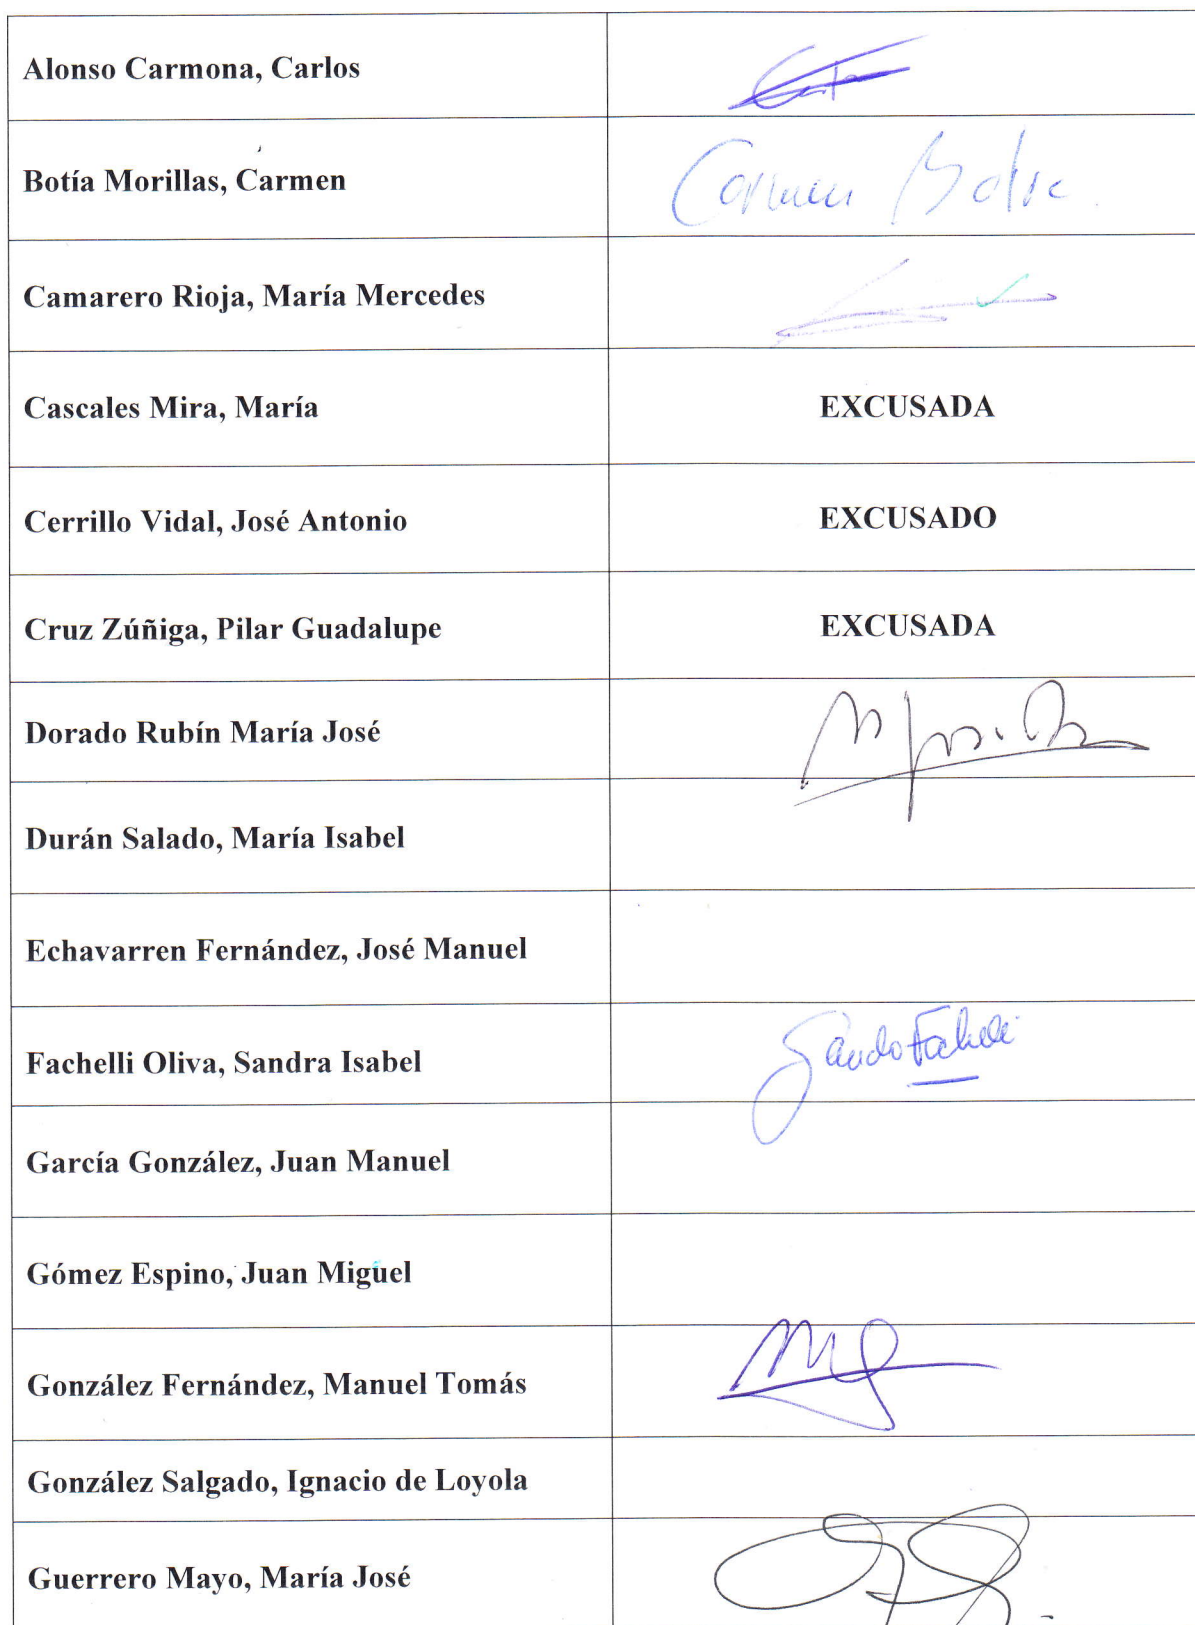 Alonso Carmona, Carlos
Botía Morillas, Carmen
Carmen Botía
Camarero Rioja, María Mercedes
Cascales Mira, María EXCUSADA
Cerrillo Vidal, José Antonio EXCUSADO
Cruz Zúñiga, Pilar Guadalupe EXCUSADA
Dorado Rubín María José
Durán Salado, María Isabel
Echavarren Fernández, José Manuel
Fachelli Oliva, Sandra Isabel
Sandra Fachelli
García González, Juan Manuel
Gómez Espino, Juan Miguel
González Fernández, Manuel Tomás
González Salgado, Ignacio de Loyola
Guerrero Mayo, María José